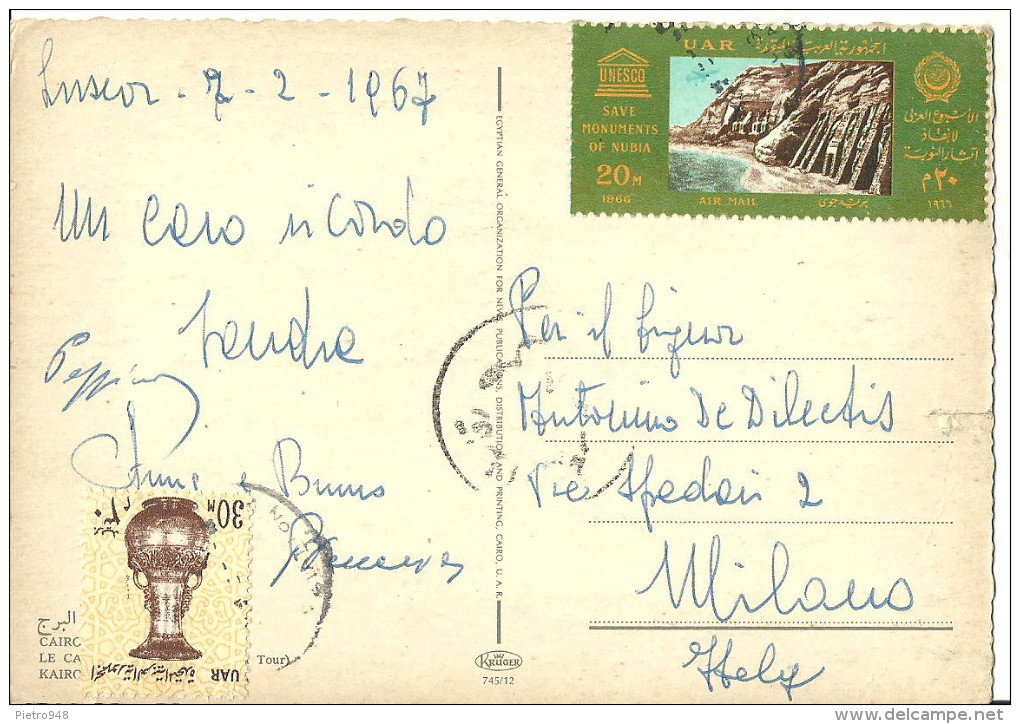 Luxor - 7 - 2 - 1967
Un caro ricordo
Sandra
Peppino
Anna e Bruno
البرج
CAIRO
LE CA
KAIRO
Tour)
30 M
UAR
EGYPTIAN GENERAL ORGANIZATION FOR NEWS, PUBLICATIONS, DISTRIBUTION AND PRINTING, CAIRO, U.A.R.
KRÜGER
745/12
UAR الجمهورية العربية المتحدة
UNESCO
SAVE
MONUMENTS
OF NUBIA
20 M
1966
AIR MAIL
بريد جوى
الأسبوع العربى
لإنقاذ
آثار النوبة
٢٠ م
١٩٦٦
Per il Signor
Antonino De Dilectis
Via Spadari 2
Milano
Italy
Pietro948
www.delcampe.net